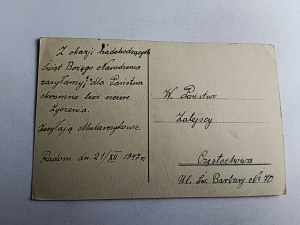 Z okazji nadchodzących
Świąt Bożego Narodzenia
zasyłamy dla Państwa
skromne lecz szczere
życzenia.
Zasyłają
Radom dn. 21/XII 1947r.
W. Państwo
Zalejscy
Częstochowa
Ul. Św. Barbary № 70